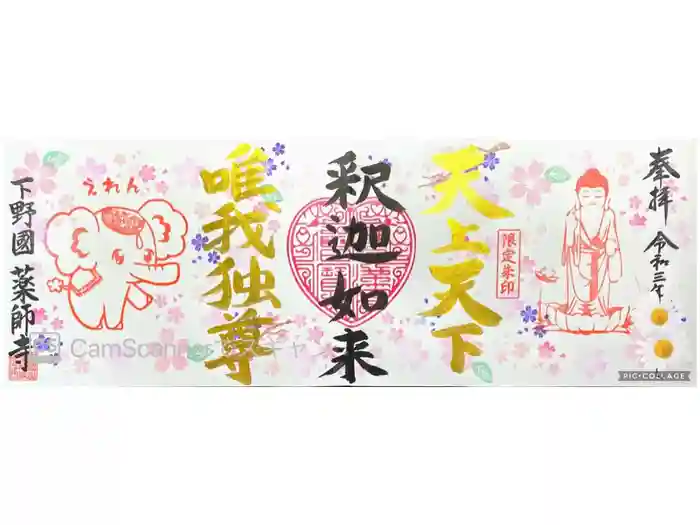 奉拝 令和三年
天上天下
限定朱印
釈迦如来
唯我独尊
えれん
下野國 薬師寺
CamScanner
PIC•COLLAGE